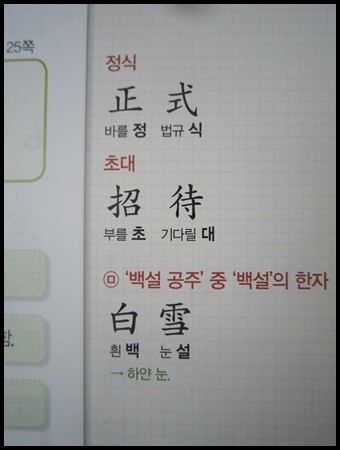 25쪽
정식
正 式
바를 정 법규 식
초대
招 待
부를 초 기다릴 대
ㅁ '백설 공주' 중 '백설'의 한자
白 雪
흰 백 눈 설
→ 하얀 눈.
함.